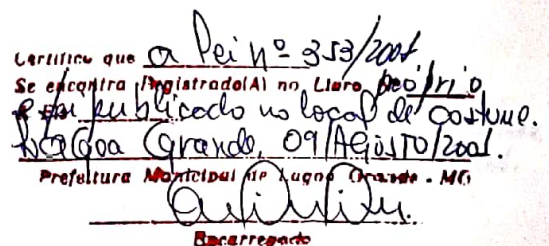 Certifico que a Lei nº 353/2001
Se encontra Registrado(A) no Livro próprio
e foi publicado no local de costume.
Lagoa Grande, 09/AGOSTO/2001.
Prefeitura Municipal de Lagoa Grande - MG
Encarregado